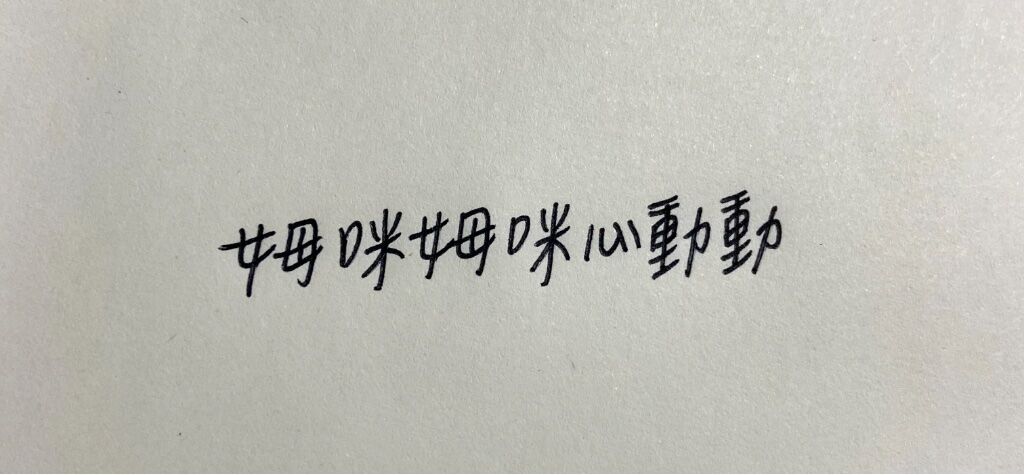 姆咪姆咪心動動